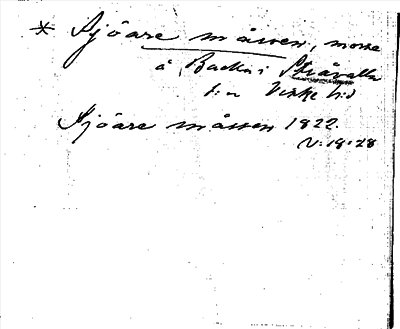 * Sjöare måssen, mosse
å Backa i Stråvalla
s:n Viske h:d
Sjöare måssen 1822.
N:18:28